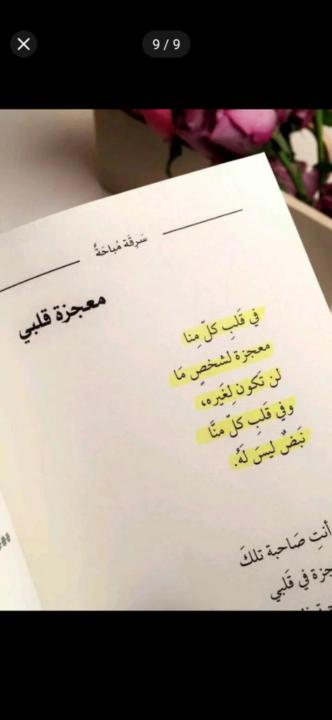 9 / 9
سَرِقَة مُباحَةٌ
معجزة قلبي
في قَلبِ كلّ مِنا
معجزة لشخصٍ مَا
لن تَكون لِغَيره،
وفي قلبِ كلّ منَّا
نَبضٌ ليسَ لَهُ.
أنتِ صَاحبة تلكَ
في قَلبي